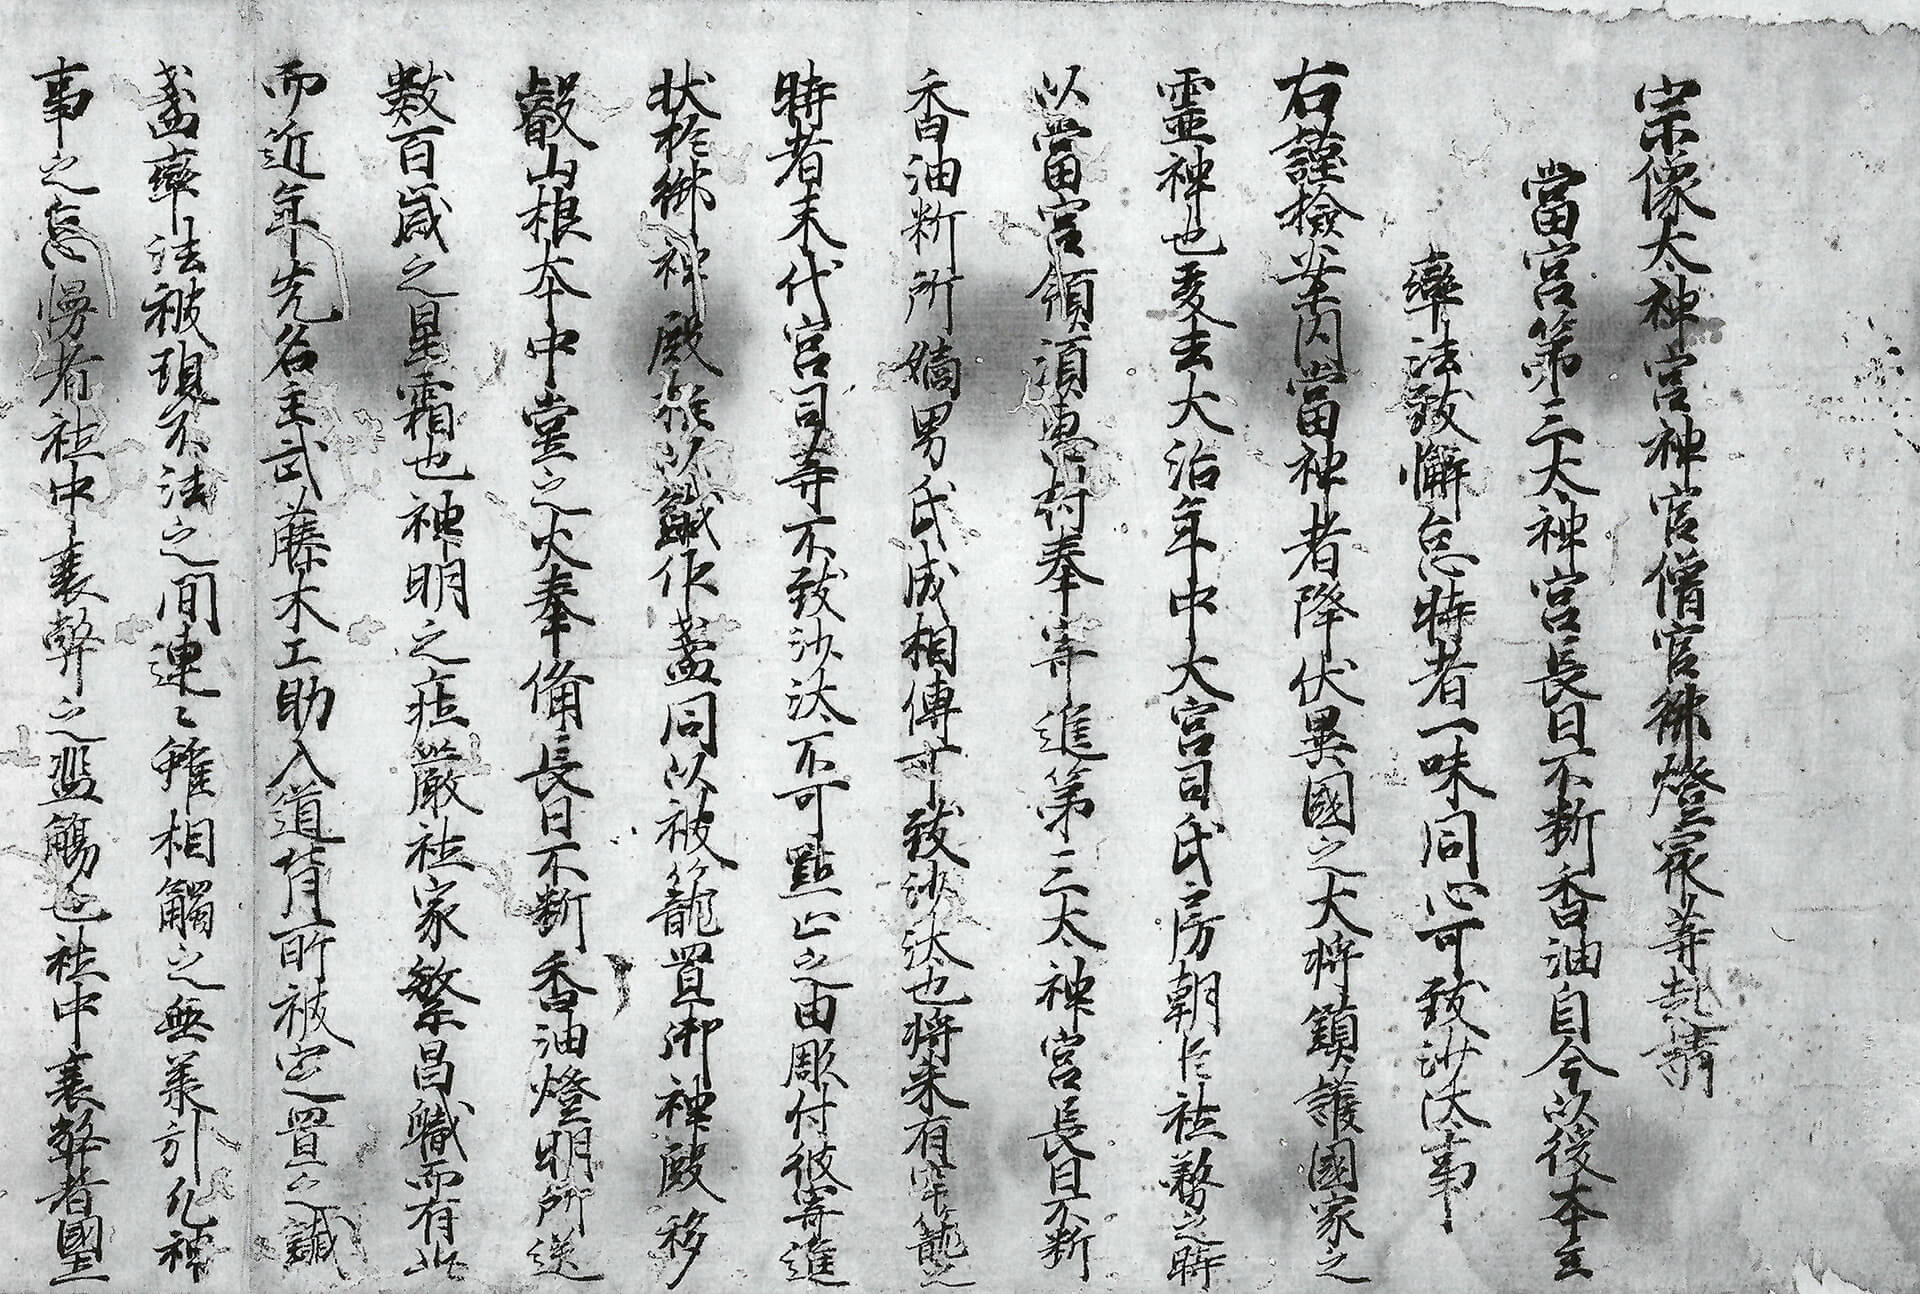 宗像太神宮神官僧官供燈衆等起請
當宮第三太神宮長日不断香油自今以後本主
率法致懈怠時者一味同心可致沙汰事
右謹検案内當神者降伏異國之大将鎮護國家之
霊神也爰去大治年中大宮司氏房朝臣社務之時
以當宮領須恵村奉寄進第三太神宮長日不断
香油断所嫡男氏成相傳寸致沙汰也将来有牢籠之
時者末代宮司等不致沙汰不可點定之由彫付彼寄進
状於御神殿柱以鹹作蓋同以被籠置御神殿移
叡山根本中堂之火奉備長日不断香油燈明所送
数百歳之星霜也神明之荘厳社家繁昌職而有此
而近年先名主武藤木工助入道背所被定置之誠
蓋率法被現不法之間連々雖相觸之無叙引凡神
事之怠慢者社中衰弊之濫觴也社中衰弊者聖